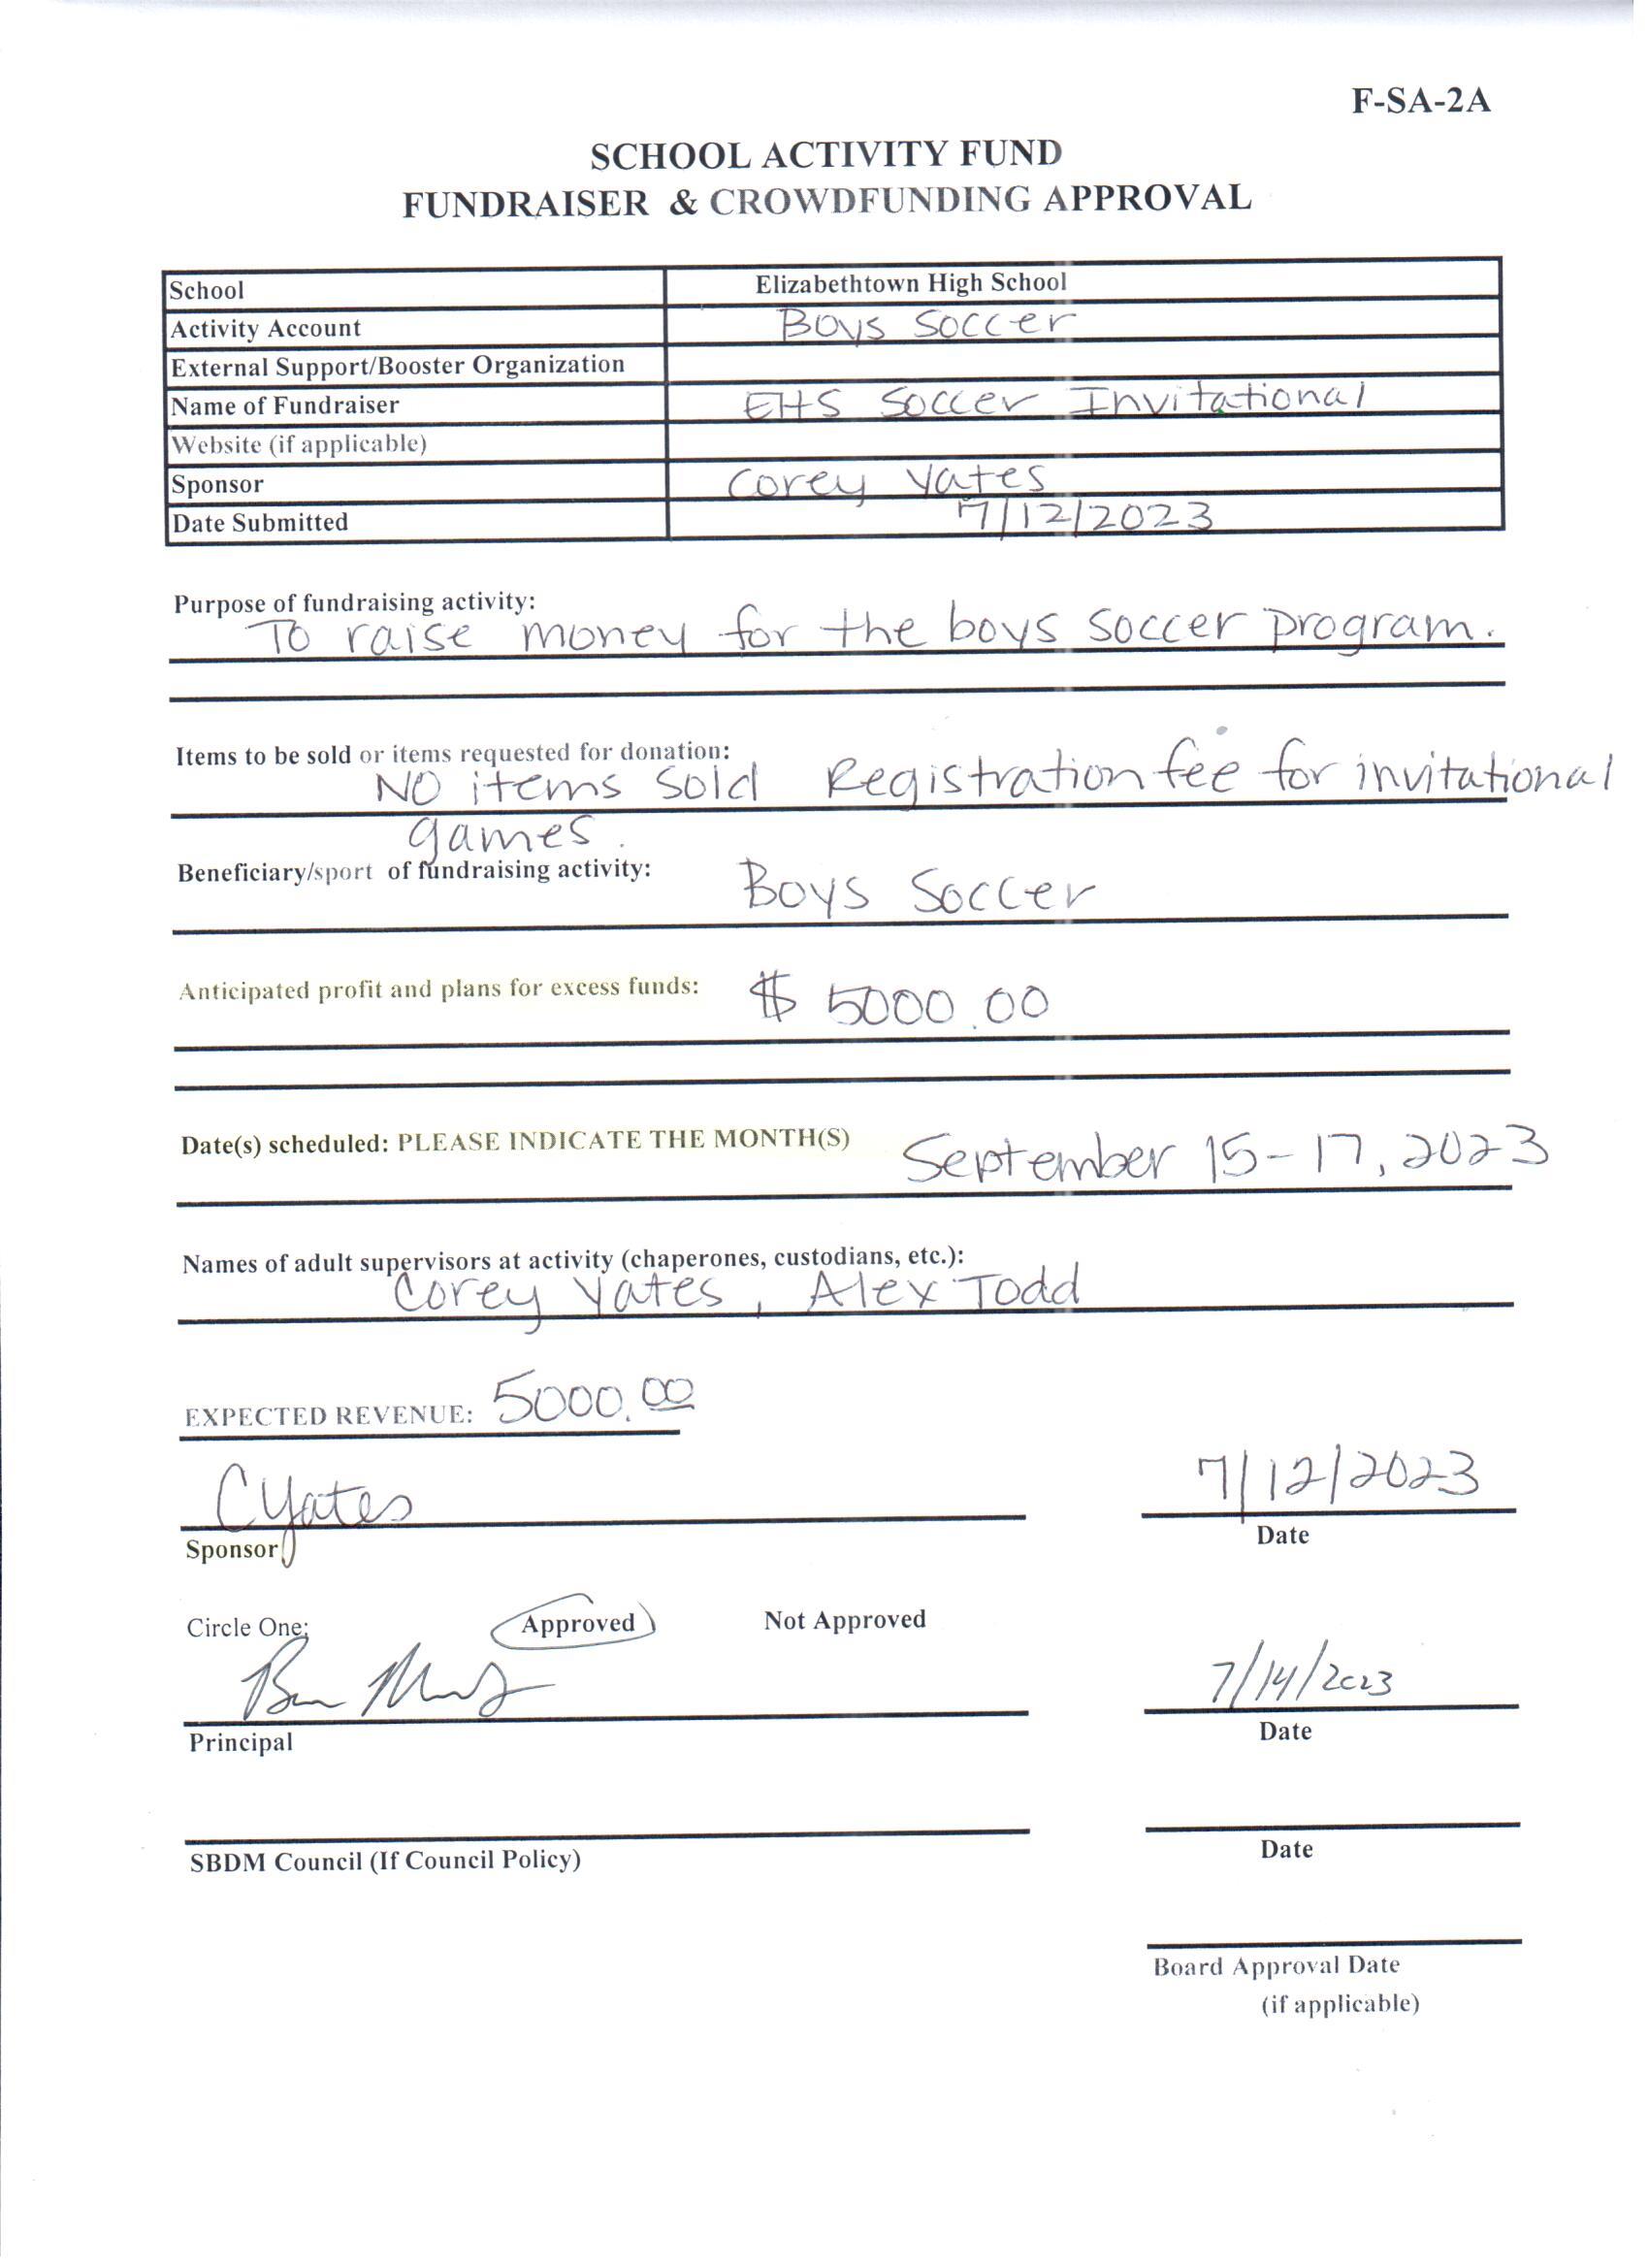 F-SA-2A
SCHOOL ACTIVITY FUND
FUNDRAISER & CROWDFUNDING APPROVAL
School Elizabethtown High School
Activity Account Boys Soccer
External Support/Booster Organization
Name of Fundraiser EHS Soccer Invitational
Website (if applicable)
Sponsor Corey Yates
Date Submitted 7/12/2023
Purpose of fundraising activity:
To raise money for the boys soccer program.
Items to be sold or items requested for donation:
NO items sold Registration fee for invitational
games.
Beneficiary/sport of fundraising activity: Boys Soccer
Anticipated profit and plans for excess funds: $ 5000.00
Date(s) scheduled: PLEASE INDICATE THE MONTH(S) September 15-17, 2023
Names of adult supervisors at activity (chaperones, custodians, etc.):
Corey Yates, Alex Todd
EXPECTED REVENUE: 5000.00
CYates 7/12/2023
Sponsor Date
Circle One: Approved Not Approved
7/14/2023
Principal Date
SBDM Council (If Council Policy) Date
Board Approval Date
(if applicable)